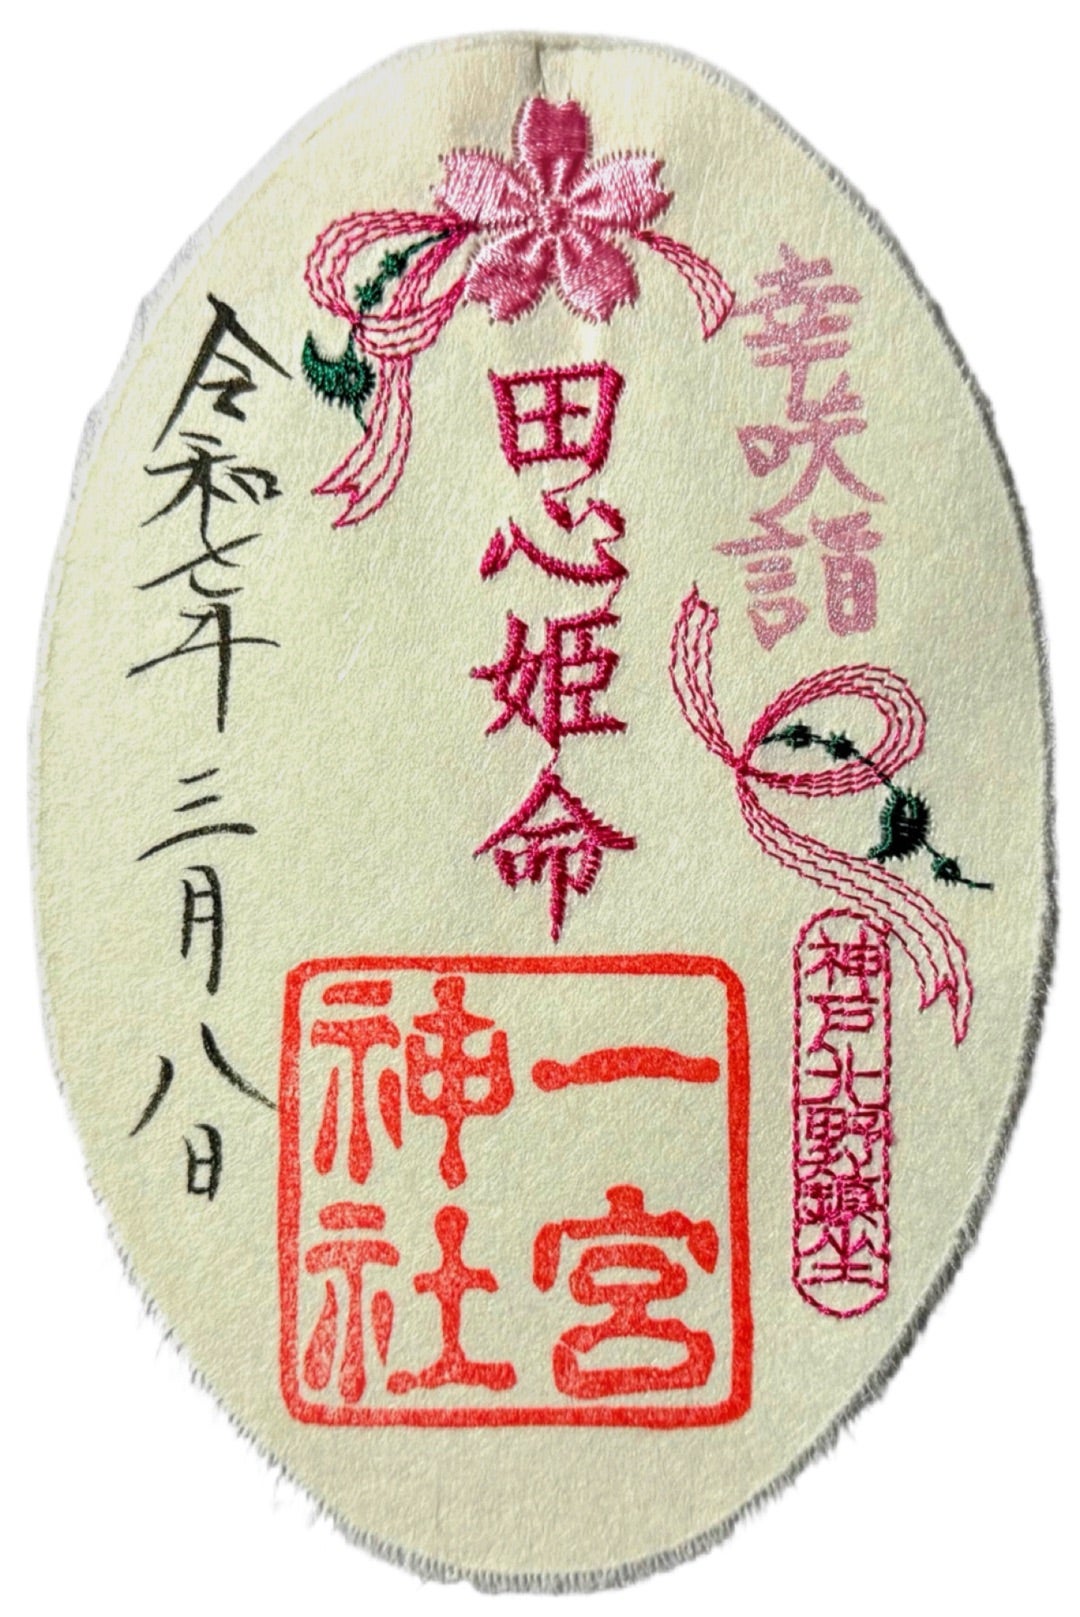 幸咲詣
神戸北野鎮坐
田心姫命
一宮
神社
令和七年三月八日